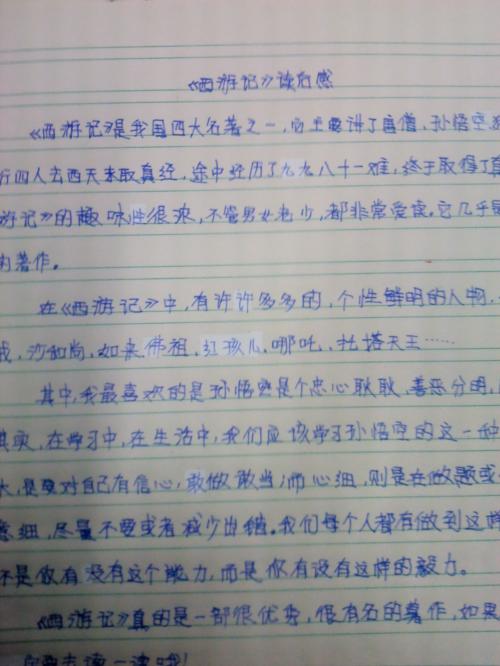 《西游记》读后感
《西游记》是我国四大名著之一,它主要讲了唐僧,孙悟空
行四人去西天来取真经,途中经历了九九八十一难,终于取得了
游记》的趣味性很浓,不管男女老少,都非常爱读。它几乎
的著作。
在《西游记》中,有许许多多的,个性鲜明的人物,
戒,沙和尚,如来佛祖,红孩儿,哪吒,托塔天王……
其中,我最喜欢的是孙悟空是个忠心耿耿、善恶分明,
其实,在学习中,在生活中,我们应该学习孙悟空的这一种
大,是要对自己有信心,敢做敢当;而心细,则是在做题或
意细,尽量不要或者减少出错。我们每个人都有做到这样
不是做有没有这个能力,而是你有没有这样的毅力。
《西游记》真的是一部很优秀,很有名的著作,如果
去读一读哦!